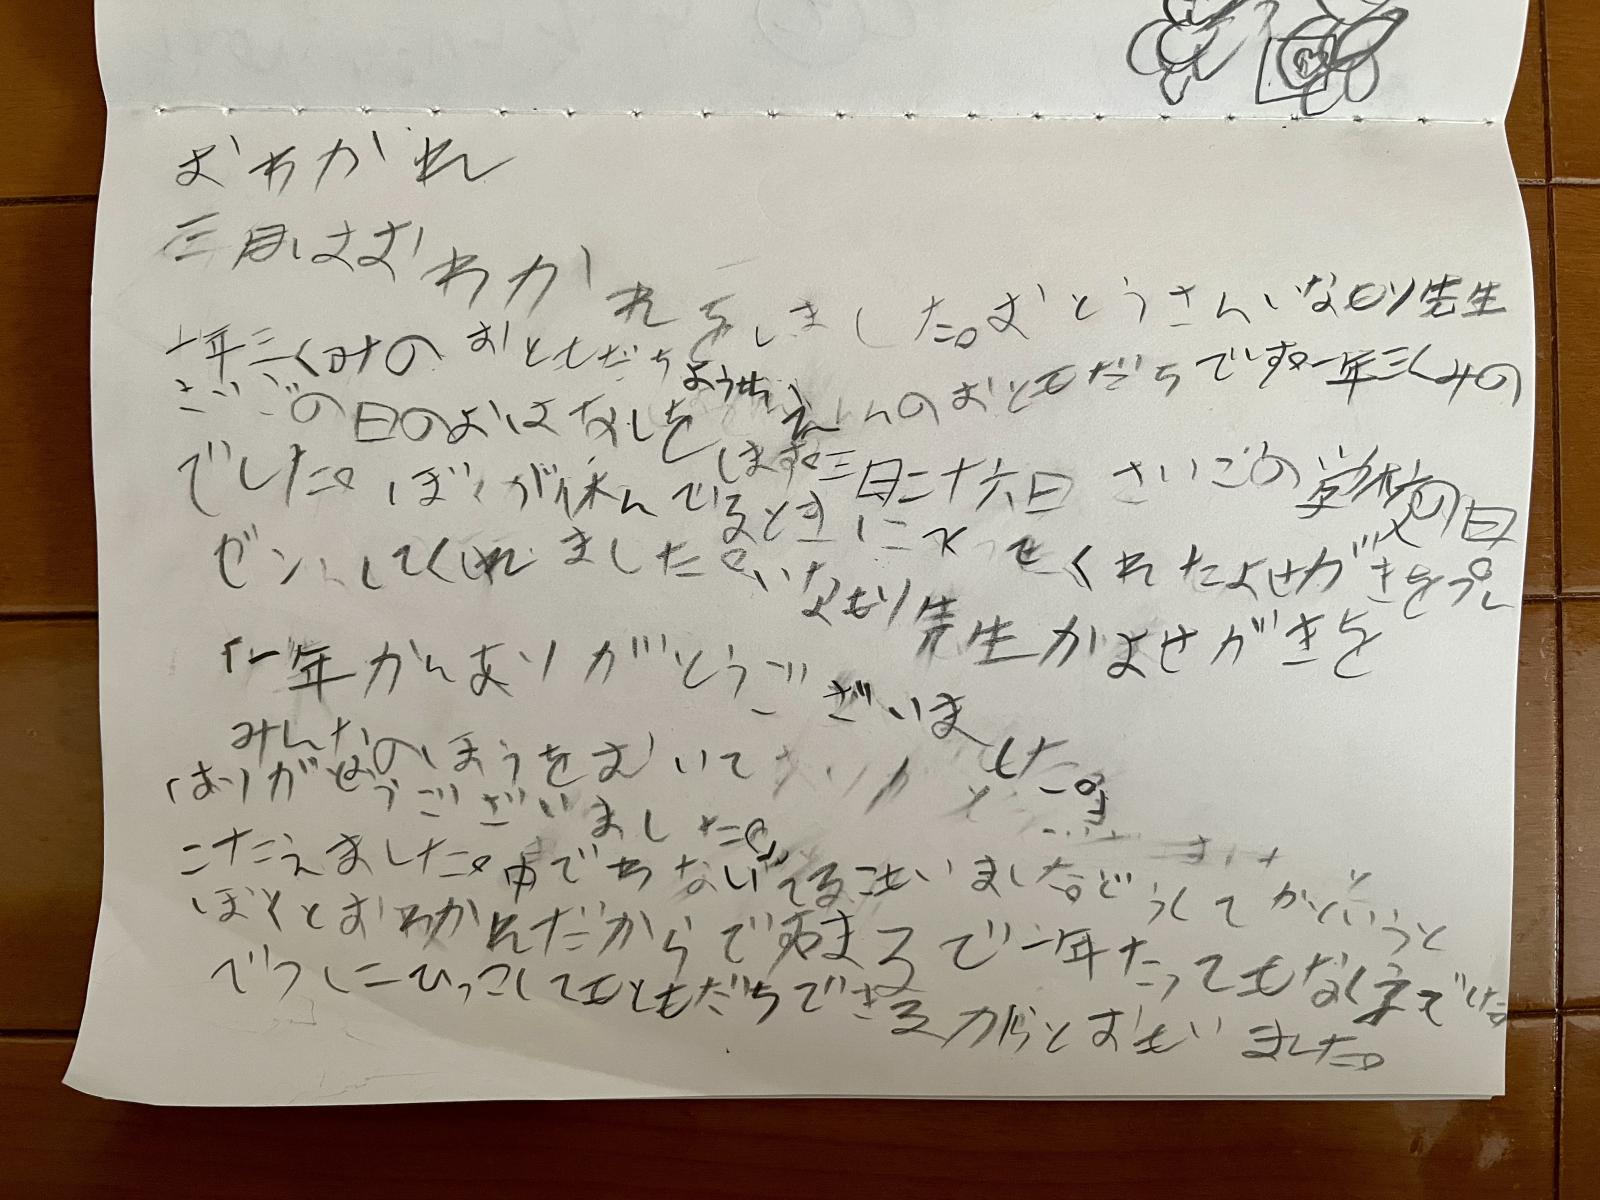 おわかれ
三月はおわかれをしました。おとうさんいなもり先生
一年三くみのおともだちようちえんのおともだちです。一年三くみの
さいごの日のおはなしをします。三月二十六日 さいごの学校の日
でした。ぼくが休んでるときに くれたよせがきをプレ
ゼンしてくれました。いなもり先生がよせがきを
「一年かんありがとうございました。」
みんなのほうをむいて
「ありがとうございました。」
こたえました。中でもないてる子もいました。どうしてかというと
ぼくとおわかれだからで で一年たってもなく子でした
べつにひっこしてもともだちできるからとおもいました。